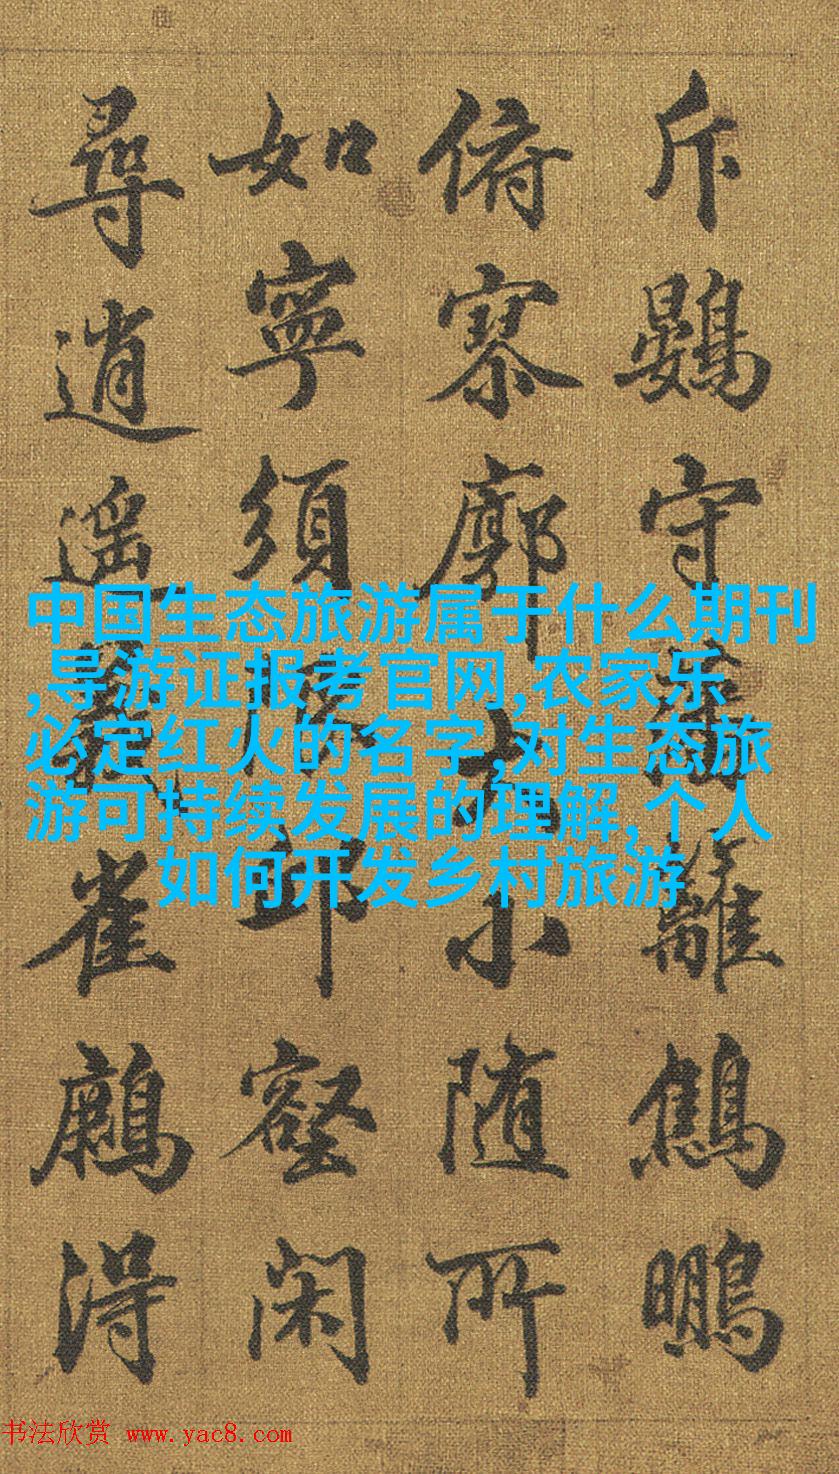 斥鷃守籬鷦鵬
俯寥廓大小随所
如寧須邱壑閑
尋逍遥雀得
中国生态旅游属于什么期刊
,导游证报考官网,农家乐
必定红火的名字,对生态旅
游可持续发展的理解,个人
如何开发乡村旅游
书法欣赏 www.yac8.com